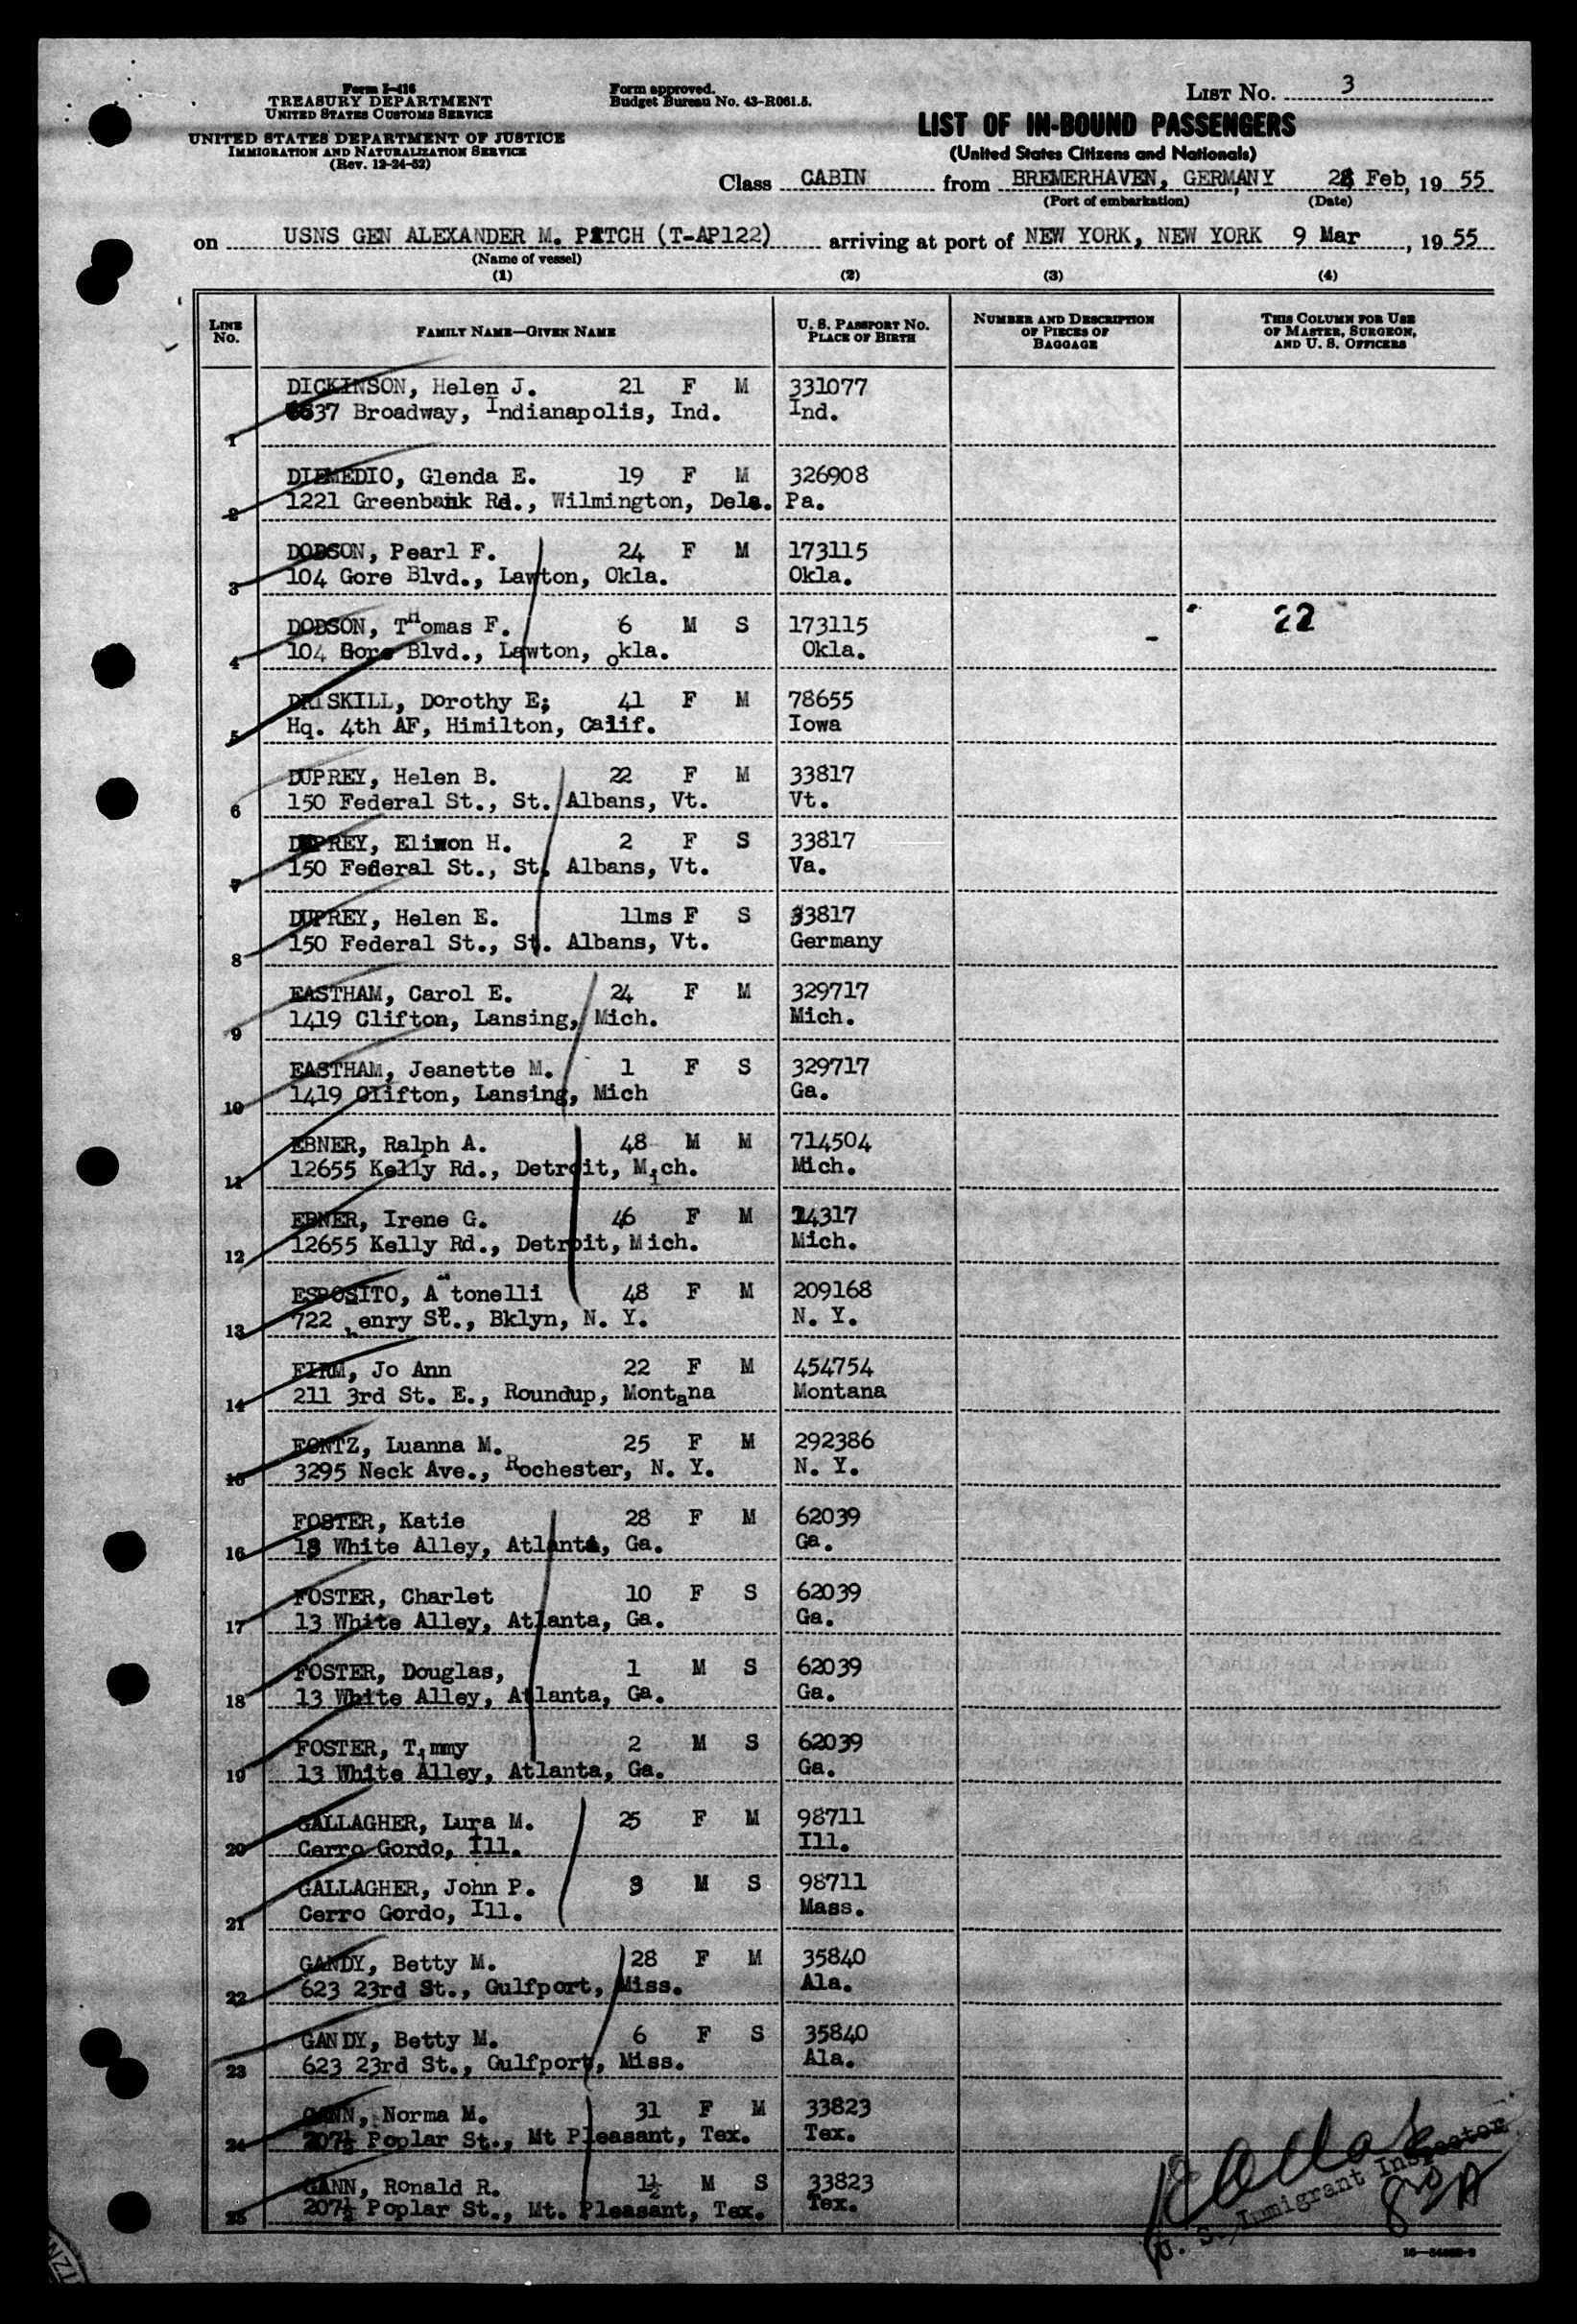 Form I-416
TREASURY DEPARTMENT
UNITED STATES CUSTOMS SERVICE
UNITED STATES DEPARTMENT OF JUSTICE
IMMIGRATION AND NATURALIZATION SERVICE
(Rev. 12-24-52)
Form approved.
Budget Bureau No. 43-R061.5.
LIST No. 3
LIST OF IN-BOUND PASSENGERS
(United States Citizens and Nationals)
Class CABIN from BREMERHAVEN, GERMANY Feb, 19 55
(Port of embarkation) (Date)
on USNS GEN ALEXANDER M. PATCH (T-AP122) arriving at port of NEW YORK, NEW YORK 9 Mar, 19 55
(Name of vessel)
(1) (2) (3) (4)
LINE No. FAMILY NAME—GIVEN NAME U. S. PASSPORT NO. PLACE OF BIRTH NUMBER AND DESCRIPTION OF PIECES OF BAGGAGE THIS COLUMN FOR USE OF MASTER, SURGEON, AND U. S. OFFICERS
DICKINSON, Helen J. 21 F M 331077
1 6637 Broadway, Indianapolis, Ind. Ind.
DIEMEDIO, Glenda E. 19 F M 326908
2 1221 Greenbank Rd., Wilmington, Dela. Pa.
DODSON, Pearl F. 24 F M 173115
3 104 Gore Blvd., Lawton, Okla. Okla.
DODSON, THomas F. 6 M S 173115 22
4 104 Gore Blvd., Lawton, okla. Okla.
DRISKILL, Dorothy E; 41 F M 78655
5 Hq. 4th AF, Himilton, Calif. Iowa
DUPREY, Helen B. 22 F M 33817
6 150 Federal St., St. Albans, Vt. Vt.
DUPREY, Elinon H. 2 F S 33817
7 150 Federal St., St. Albans, Vt. Va.
DUPREY, Helen E. 11ms F S 33817
8 150 Federal St., St. Albans, Vt. Germany
EASTHAM, Carol E. 24 F M 329717
9 1419 Clifton, Lansing, Mich. Mich.
EASTHAM, Jeanette M. 1 F S 329717
10 1419 Clifton, Lansing, Mich Ga.
EBNER, Ralph A. 48 M M 714504
11 12655 Kelly Rd., Detroit, Mich. Mich.
EBNER, Irene G. 46 F M 14317
12 12655 Kelly Rd., Detroit, Mich. Mich.
ESPOSITO, Antonelli 48 F M 209168
13 722 Henry St., Bklyn, N. Y. N. Y.
FIRM, Jo Ann 22 F M 454754
14 211 3rd St. E., Roundup, Montana Montana
FONTZ, Luanna M. 25 F M 292386
15 3295 Neck Ave., Rochester, N. Y. N. Y.
FOSTER, Katie 28 F M 62039
16 13 White Alley, Atlanta, Ga. Ga.
FOSTER, Charlet 10 F S 62039
17 13 White Alley, Atlanta, Ga. Ga.
FOSTER, Douglas, 1 M S 62039
18 13 White Alley, Atlanta, Ga. Ga.
FOSTER, Timmy 2 M S 62039
19 13 White Alley, Atlanta, Ga. Ga.
GALLAGHER, Lura M. 25 F M 98711
20 Cerro Gordo, Ill. Ill.
GALLAGHER, John P. 3 M S 98711
21 Cerro Gordo, Ill. Mass.
GANDY, Betty M. 28 F M 35840
22 623 23rd St., Gulfport, Miss. Ala.
GANDY, Betty M. 6 F S 35840
23 623 23rd St., Gulfport, Miss. Ala.
GANN, Norma M. 31 F M 33823
24 207½ Poplar St., Mt Pleasant, Tex. Tex.
GANN, Ronald R. 1½ M S 33823
25 207½ Poplar St., Mt. Pleasant, Tex. Tex.
U. S. Immigrant Inspector